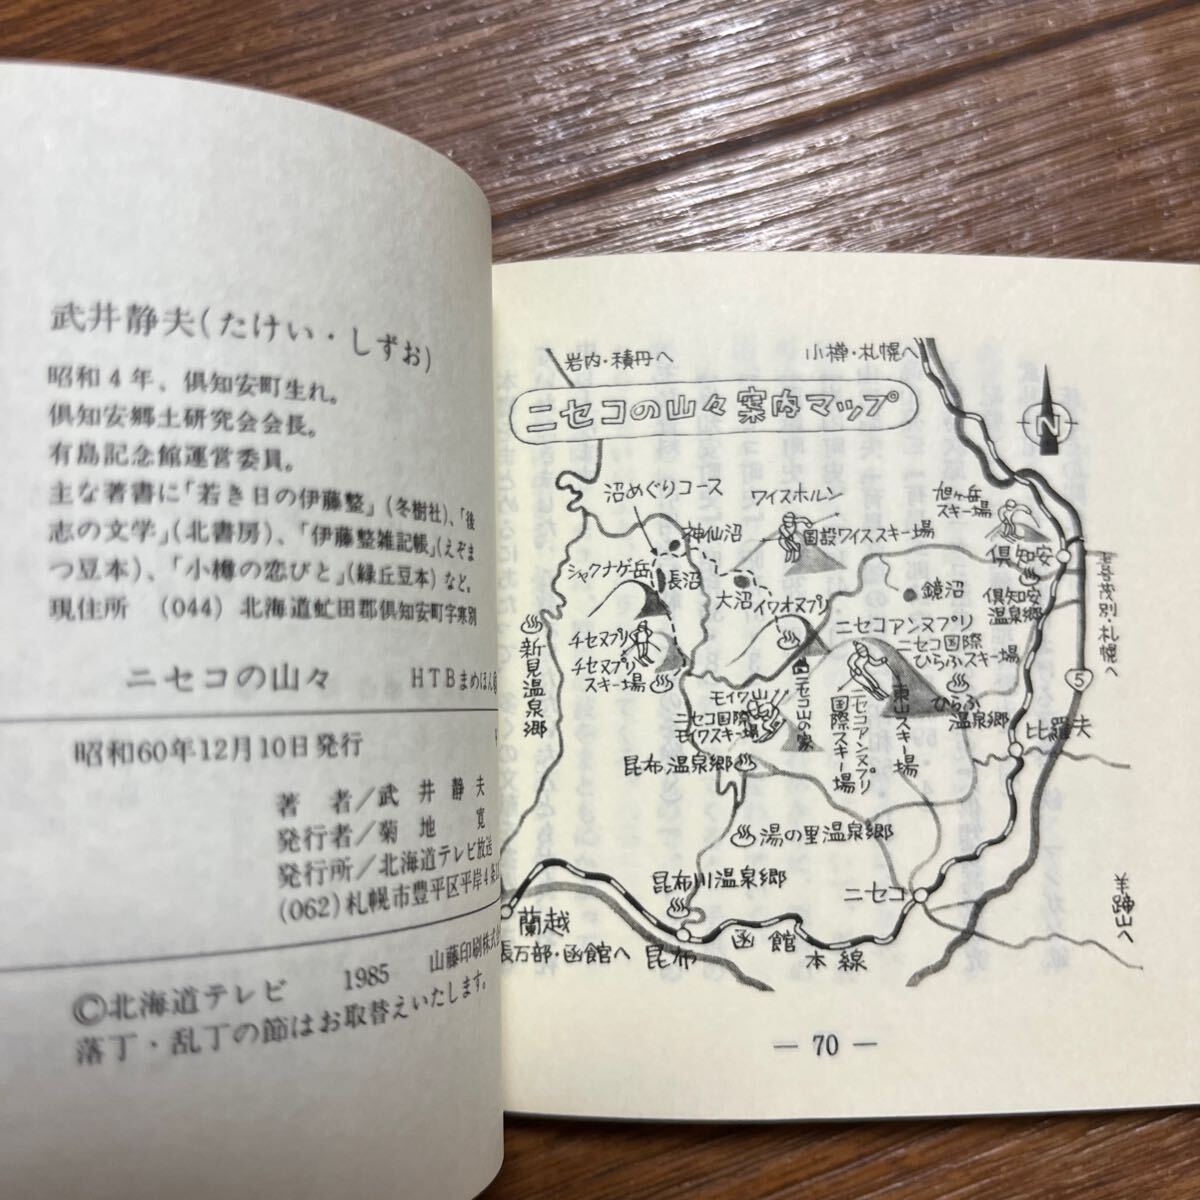 武井静夫(たけい・しずお)
昭和4年、倶知安町生れ。
倶知安郷土研究会会長。
有島記念館運営委員。
主な著書に「若き日の伊藤整」(冬樹社)、「後
志の文学」(北書房)、「伊藤整雑記帳」(えぞま
つ豆本)、「小樽の恋びと」(緑丘豆本)など。
現住所 (044) 北海道虻田郡倶知安町字寒別
ニセコの山々 HTBまめほん
昭和60年12月10日発行
著者/武井静夫
発行者/菊地寛
発行所/北海道テレビ放送
(062)札幌市豊平区平岸4条
山藤印刷株式会
©北海道テレビ 1985
落丁・乱丁の節はお取替えいたします。
岩内・積丹へ
小樽・札幌へ
ニセコの山々案内マップ
N
沼めぐりコース
ワイスホルン
旭ヶ岳
スキー場
神仙沼
国設ワイススキー場
倶知安
シャクナゲ岳
長沼
大沼
イワオヌプリ
鏡沼
倶知安
温泉郷
喜茂別・札幌へ
チセヌプリ
チセヌプリ
スキー場
新見温泉郷
ニセコアンヌプリ
ニセコ国際
ひらふスキー場
ひらふ
温泉郷
5
モイワ山
ニセコ国際
モイワスキー場
ニセコ山の家
ニセコアンヌプリ
国際スキー場
東山スキー場
比羅夫
昆布温泉郷
湯の里温泉郷
昆布川温泉郷
ニセコ
羊蹄山へ
蘭越
長万部・函館へ
昆布
函館
本線
— 70 —